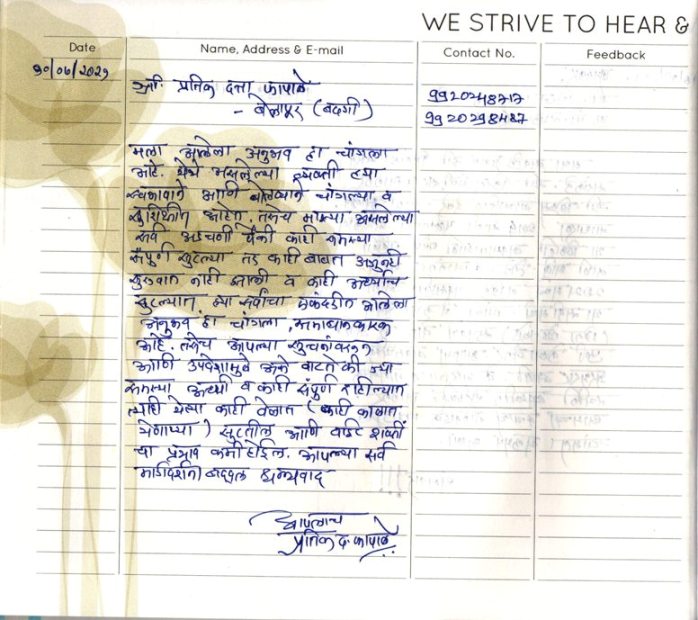 WE STRIVE TO HEAR &
Date Name, Address & E-mail Contact No. Feedback
श्री. प्रतिक दत्ता कापाळे
- बेलापूर (बदगी)
9920248717
9920298487
मला आलेला अनुभव हा चांगला
आहे. येथे असलेल्या व्यक्ती ह्या
स्वभावाने आणि बोलण्याने चांगल्या व
सुशिक्षीत आहेत. तसेच माझ्या असलेल्या
सर्व अडचणी पैकी काही समस्या
संपुर्ण सुटल्या तर काही बाबत अजुनही
सुरुवात नाही झाली व काही अर्ध्याच
सुटल्यात ह्या सर्वांचा एकंदरीत आलेला
अनुभव हा चांगला, समाधानकारक
आहे. तसेच आपल्या सुचनांवरून
आणि उपदेशामुळे असे वाटते की ज्या
समस्या अर्ध्या व काही संपुर्ण राहील्यात
त्याही येत्या काही वेळात (काही काळात
येणाऱ्या) सुटतील आणि वाईट शक्तीं
चा प्रभाव कमी होईल. आपल्या सर्व
मार्गदर्शनाबद्दल धन्यवाद
आपलाच
प्रतिक द. कापाळे